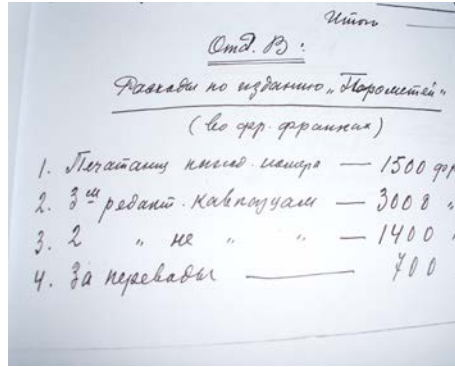 Итого
Отд. В:
Расходы по изданию „Прометей“
(во фр. франках)
1. Печатание номера — 1500 фр
2. 3м редакт. кавказцам — 3000 „
3. 2 „ не „ „ — 1400 „
4. За переводы — 700